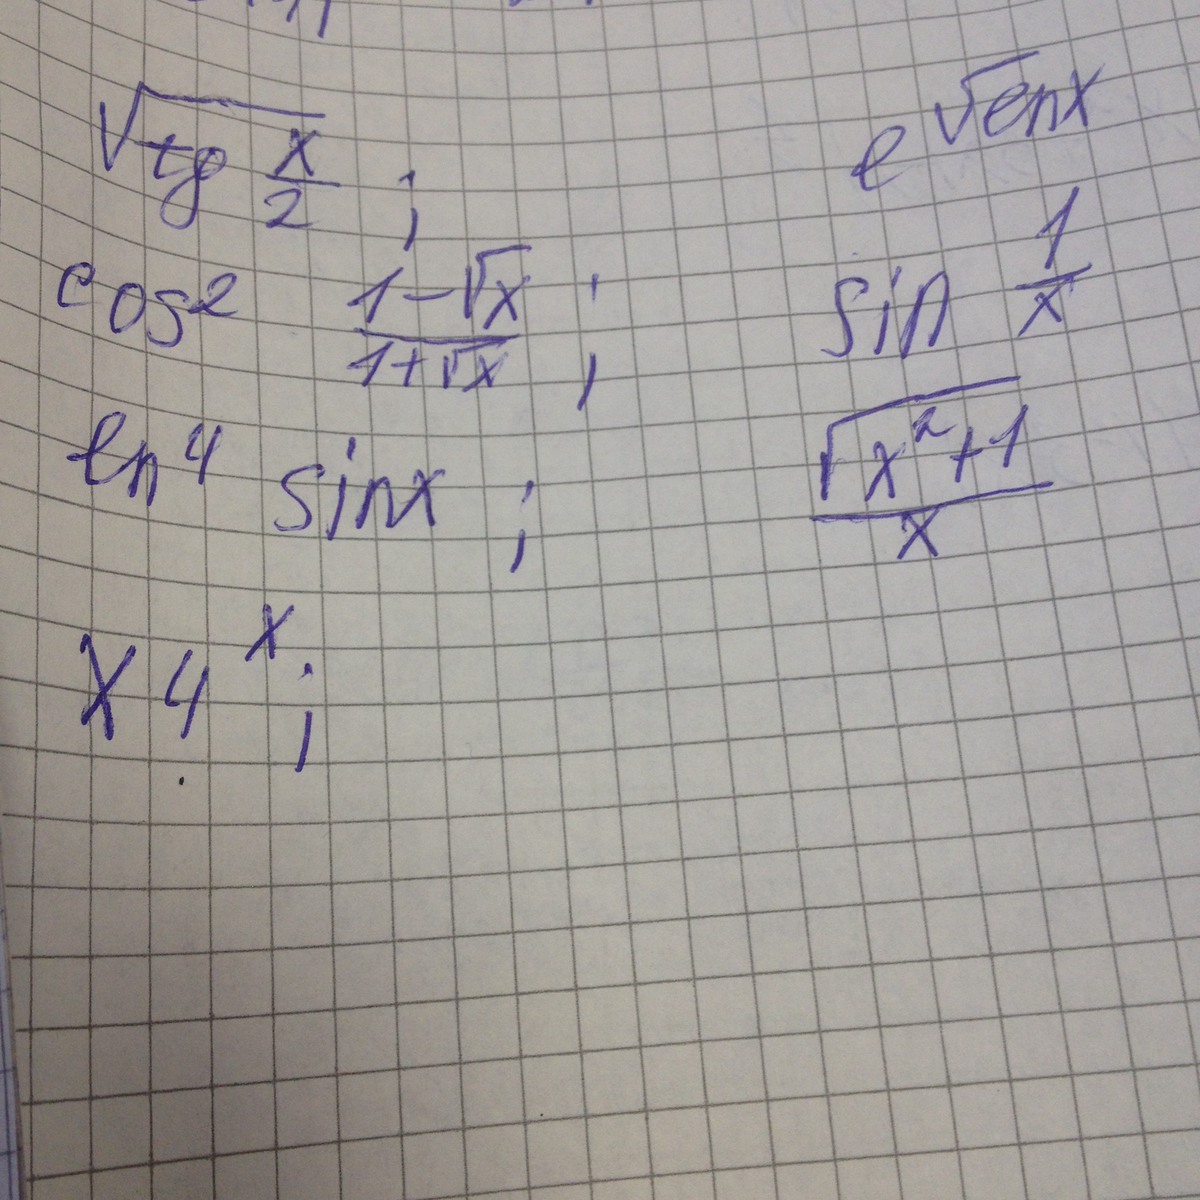 √tg x/2 ; e^√lnx
cos² (1-√x)/(1+√x) ; sin 1/x
ln⁴ sinx ; √(x²+1)/x
x4^x ;